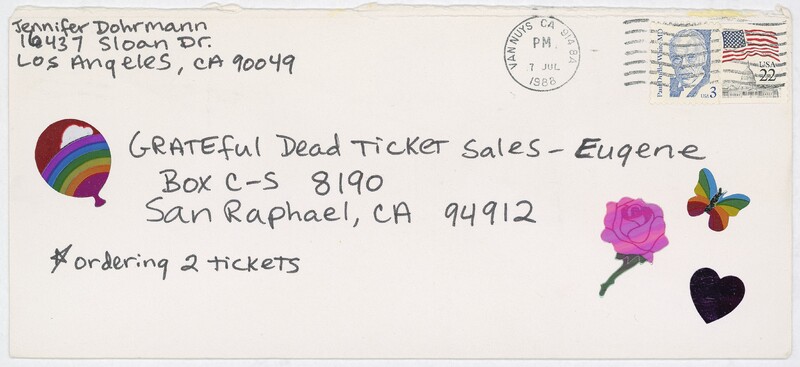 Jennifer Dohrmann
16437 Sloan Dr.
Los Angeles, CA 90049
VAN NUYS CA
PM
7 JUL
1988
Paul Dudley White MD
USA 3
USA
22
GRATEful Dead Ticket Sales - Eugene
Box C-S 8190
San Raphael, CA 94912
* ordering 2 tickets